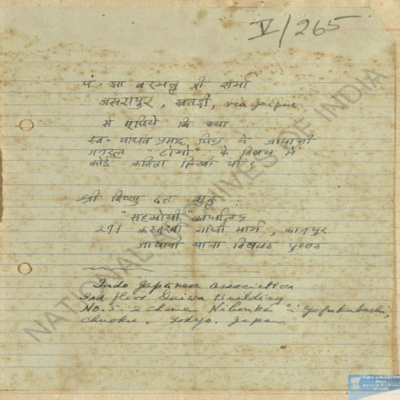 V/265
पं. झाबरमल्ल श्री शर्मा
जसरापुर, खेतड़ी, via Jaipur
से पूछिये कि क्या
स्व. माधव प्रसाद मिश्र ने
के विषय में
कोई कविता लिखी थी?
श्री विष्णु दत्त शुक्ल
"सहयोगी" कार्यालय
291 कस्तूरबा गांधी मार्ग, कानपुर
जापानी यात्रा विषयक पुस्तक
Indo Japanese Association
3rd floor Daiwa Building
No. 5. 2 chome Nihonbashi Gofukubashi,
Chuoku. Tokyo. Japan
NATIONAL ARCHIVES OF INDIA